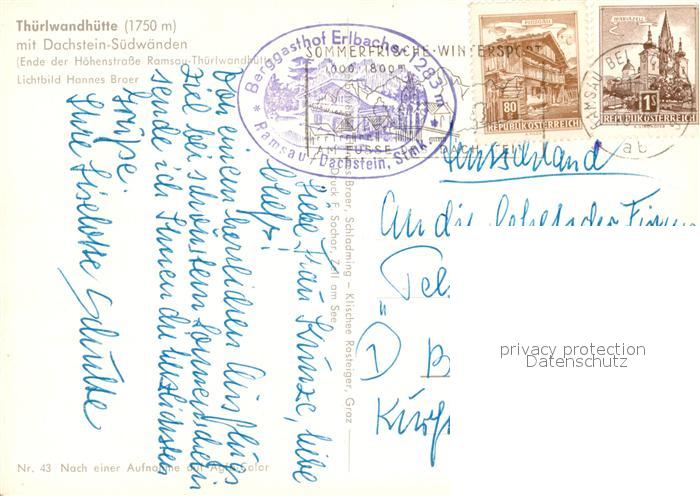 Thürlwandhütte (1750 m)
mit Dachstein-Südwänden
(Ende der Höhenstraße Ramsau-Thürlwandhütte
Lichtbild Hannes Broer
Berggasthof Erlbacher 1283 m
* Ramsau / Dachstein, Stmk. *
SOMMERFRISCHE-WINTERSPORT
1000 1800 m
AM FUSSE
DACHSTEIN
RAMSAU BEI
ab
PINZGAU
80
REPUBLIK ÖSTERREICH
MARIAZELL
1S
REPUBLIK ÖSTERREICH
Liebe Frau Kunze, liebe
Von einem herrlichen Ausflugs
Ziel bei schönstem Sonnenschein
sende ich Ihnen die herzlichsten
Grüße.
Ihre Liselotte Schulte
Hannes Broer, Schladming – Klischee Rasteiger, Graz
Druck F. Sochor, Zell am See
Deutschland
An die
der Firma
"Tel
D B
Kirch
privacy protection
Datenschutz
Nr. 43 Nach einer Aufnahme auf Agfa-Color